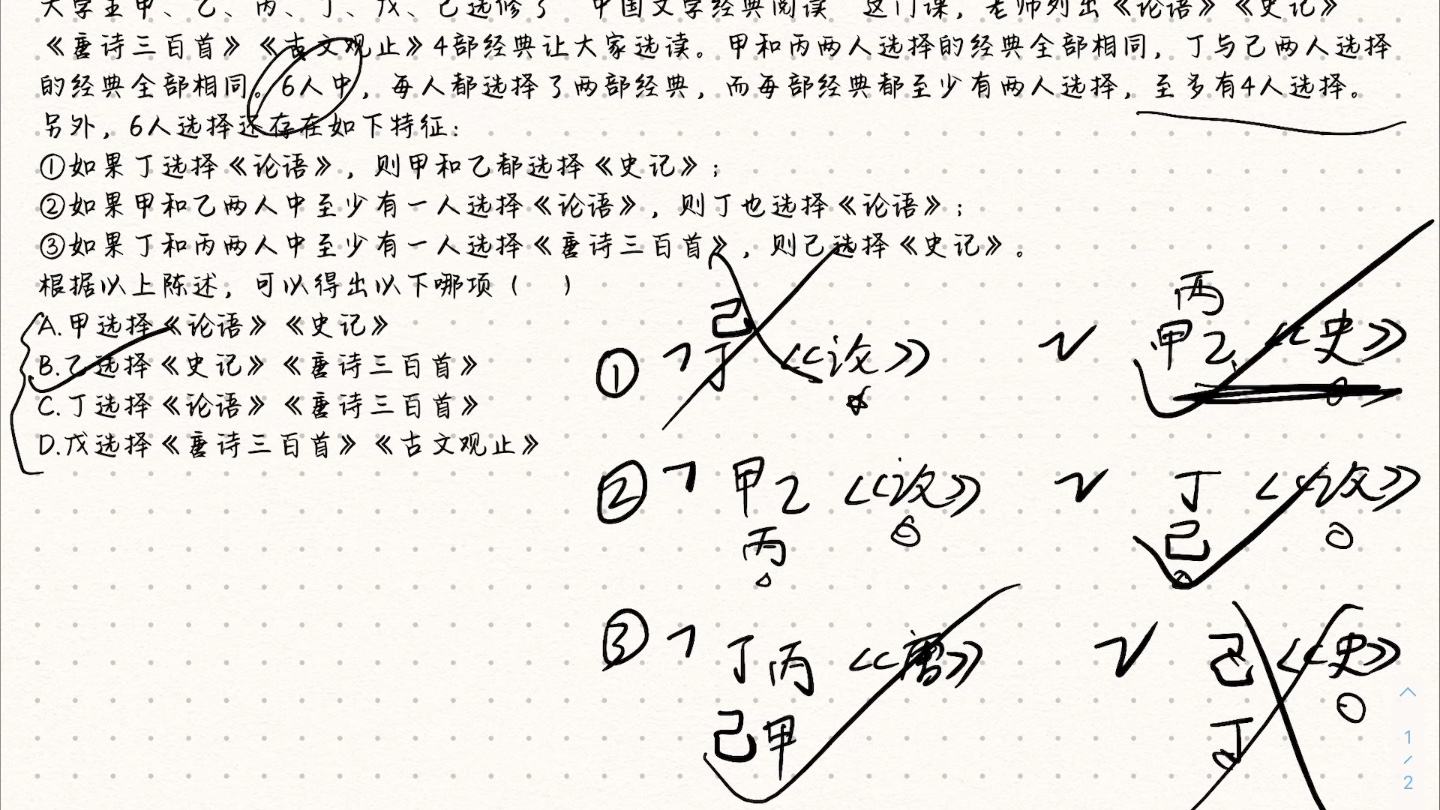 大学生甲、乙、丙、丁、戊、己选修了“中国文学经典阅读”这门课，老师列出《论语》《史记》
《唐诗三百首》《古文观止》4部经典让大家选读。甲和丙两人选择的经典全部相同，丁与己两人选择
的经典全部相同。6人中，每人都选择了两部经典，而每部经典都至少有两人选择，至多有4人选择。
另外，6人选择还存在如下特征：
①如果丁选择《论语》，则甲和乙都选择《史记》；
②如果甲和乙两人中至少有一人选择《论语》，则丁也选择《论语》；
③如果丁和丙两人中至少有一人选择《唐诗三百首》，则己选择《史记》。
根据以上陈述，可以得出以下哪项（ ）
A.甲选择《论语》《史记》
B.乙选择《史记》《唐诗三百首》
C.丁选择《论语》《唐诗三百首》
D.戊选择《唐诗三百首》《古文观止》
己 丙
① ㄱ丁《论》 ∨ 甲乙《史》
② ㄱ 甲乙《论》 ∨ 丁《论》
丙 己
③ ㄱ 丁丙《唐》 ∨ 己《史》
己甲 丁
1
/
2